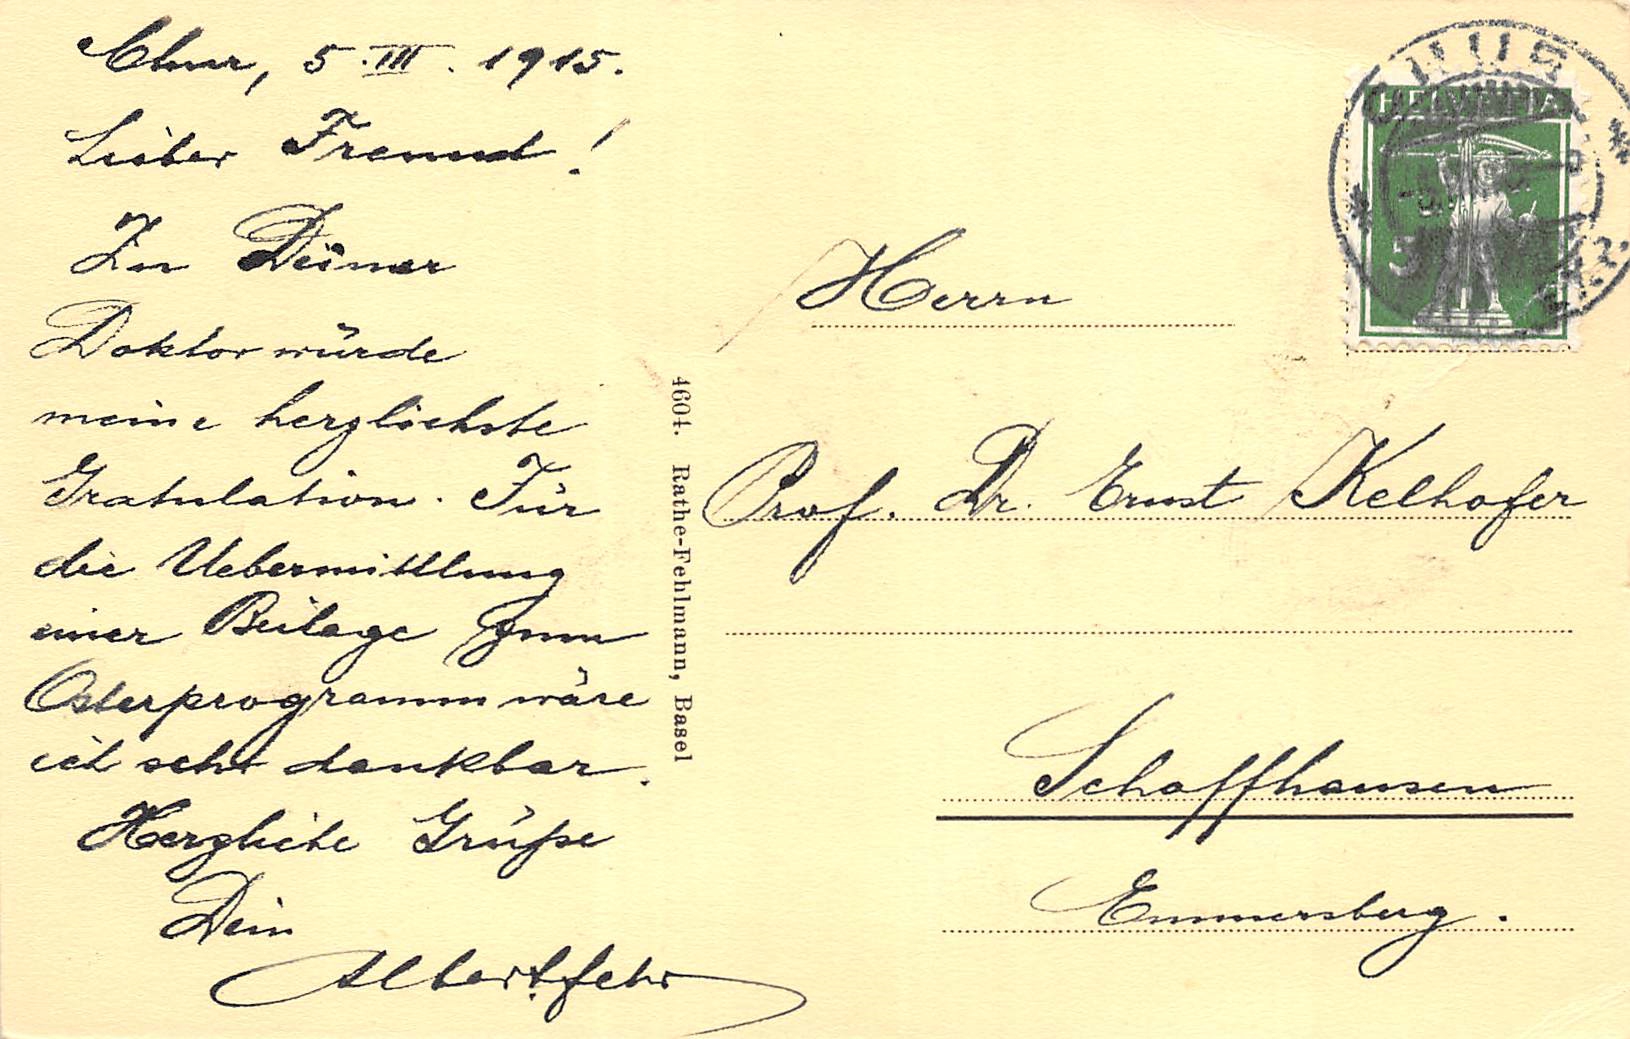 Chur, 5. III. 1915.
Lieber Freund!
Zu Deiner
Doktorwürde
meine herzlichste
Gratulation. Für
die Uebermittlung
einer Beilage zum
Osterprogramm wäre
ich sehr dankbar.
Herzliche Grüße
Dein
Albert Fehr
4604. Rathe-Fehlmann, Basel
HELVETIA
5
Herrn
Prof. Dr. Ernst Kelhofer
Schaffhausen
Emmersberg.